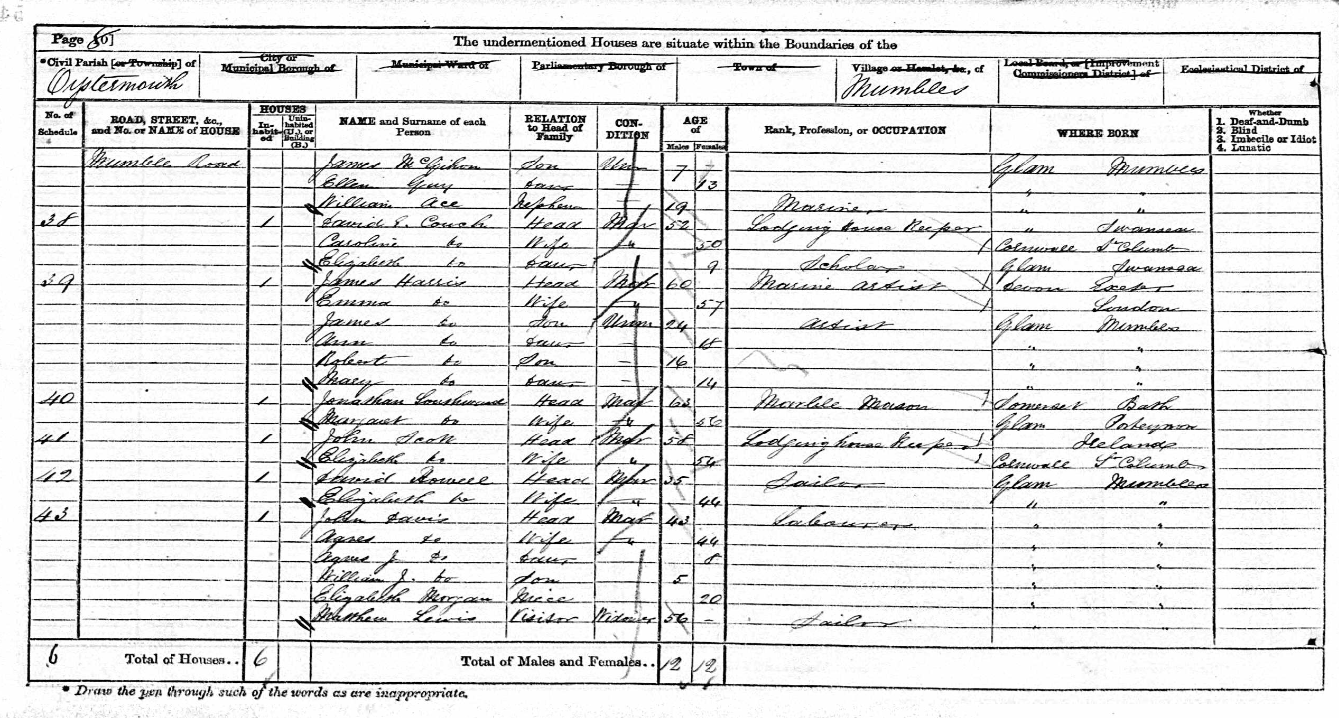 Page 10] 6
The undermentioned Houses are situate within the Boundaries of the
*Civil Parish [or Township] of
City or Municipal Borough of
Municipal Ward of
Parliamentary Borough of
Town of
Village or Hamlet, &c., of
Local Board, or [Improvement Commissioners District] of
Ecclesiastical District of
Oystermouth Mumbles
No. of Schedule
ROAD, STREET, &c., and No. or NAME of HOUSE
HOUSES
In-habit-ed
Unin-habited (U.), or Building (B.)
NAME and Surname of each Person
RELATION to Head of Family
CON-DITION
AGE of
Males Females
Rank, Profession, or OCCUPATION
WHERE BORN
Whether
1. Deaf-and-Dumb
2. Blind
3. Imbecile or Idiot
4. Lunatic
Mumble Road James Son Unm 7 Glam Mumbles
Ellen Guy Daur — 13 " "
William Ace Nephew — 19 Mariner " "
38 1 David E. Couch Head Mar 52 Lodging House Keeper " Swansea
Caroline Do Wife " 50 Cornwall St Columb
Elizabeth Do Daur 9 Scholar Glam Swansea
39 1 James Harris Head Mar 60 Marine Artist Devon Exeter
Emma Do Wife " 57 London
James Do Son Unm 24 Artist Glam Mumbles
Ann Do Daur — 18 " "
Robert Do Son — 16 " "
Mary Do Daur — 14 " "
40 1 Jonathan Head Mar 63 Marble Mason Somerset Bath
Margaret Do Wife " 56 Glam Porteynon
41 1 John Scott Head Mar 58 Lodging house Keeper Ireland
Elizabeth Do Wife " 54 Cornwall St Columb
42 1 David Howell Head Mar 35 Sailor Glam Mumbles
Elizabeth Do Wife " 44 " "
43 1 John Davis Head Mar 43 Labourer " "
Agnes Do Wife " 44 " "
Agnes J. Do Daur 8 " "
William J. Do Son 5 " "
Elizabeth Morgan Niece 20 " "
Matthew Lewis Visitor Widower 56 – Sailor " "
6 Total of Houses.. 6 Total of Males and Females.. 12 12
* Draw the pen through such of the words as are inappropriate.